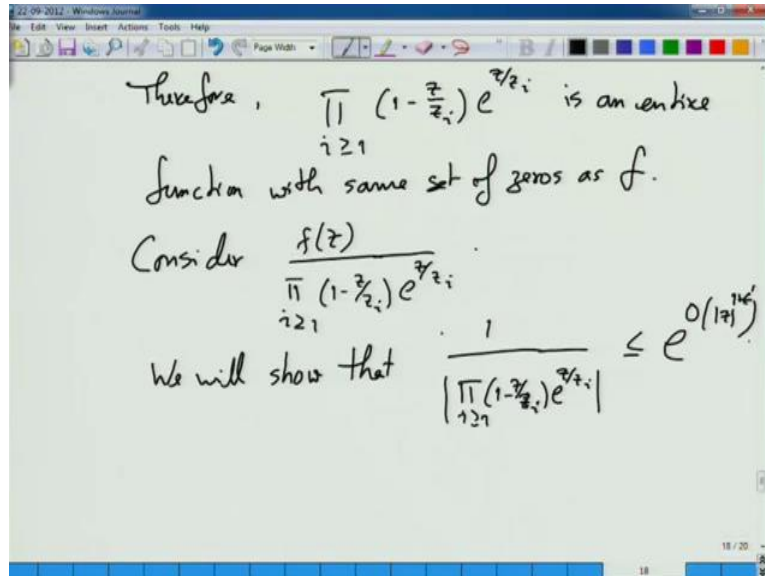 22-09-2012 - Windows Journal
Edit View Insert Actions Tools Help
Page Width
Therefore, ∏_{i≥1} (1 - z/z_i) e^{z/z_i} is an entire
function with same set of zeros as f.
Consider f(z) / ∏_{i≥1} (1 - z/z_i) e^{z/z_i} .
We will show that 1 / |∏_{i≥1} (1 - z/z_i) e^{z/z_i}| ≤ e^{O(|z|^{1+ε'})}
18 / 20
18